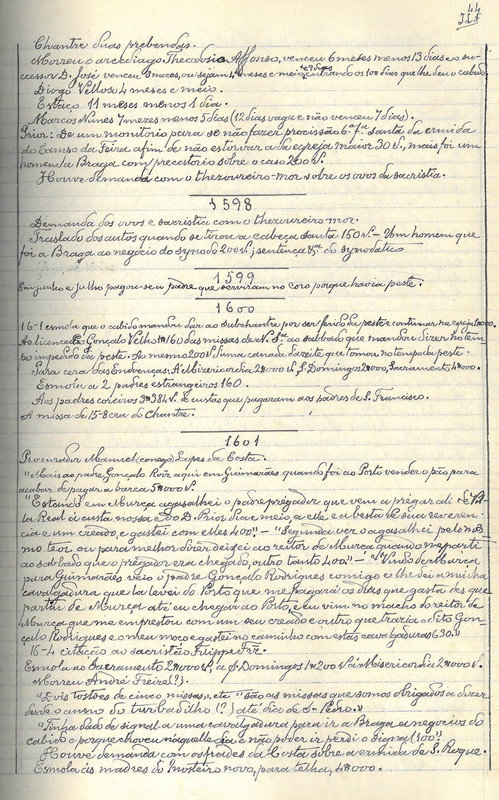 44
Chantre duas prebendas.
Morreu o arcediago Theodosio Affonso, venceu 6 mezes menos 13 dias e o su-
cessor D. José venceu 5 mezes, ou sejam 4 mezes e meio e 7 dias, entrando os 100 dias que lhe deu o cabido.
Diogo Velloso 4 mezes e meio.
Estaço 11 mezes menos 1 dia.
Marcos Nunes 7 mezes menos 5 dias (12 dias vaga e não venceu 7 dias).
Prior: De um monitorio para se não fazer procissão 6ª fª santa da ermida
do Campo da Feira afim de não estorvar a da egreja maior 30 rs., mais foi um
homem a Braga com precatorio sobre o caso 200 rs.
Houve demanda com o thezoureiro-mor sobre os ovos da sacristia.
1598
Demanda dos ovos e sacristia com o thezoureiro-mor.
Traslado dos autos quando se tirou a cabeça santa 150 rs. - Um homem que
foi a Braga ao negocio do synodo 200 rs; sentença do synodatico
1599
Em junho e julho pagou-se a padres que serviram no coro porque havia peste.
1600
16-1 esmola que o cabido mandou dar ao subchantre por ser ferido da peste e continuar na egreja
Ao licenceado Gonçalo Velho 160 das missas de N. Sra. ao sabbado que mandou dizer no tem
po impedido da peste. Ao mesmo 200 rs. uma canada d'azeite que tomou no tempo da peste.
Para cera das Endoenças: Á Mizericordia 2$000 rs., S. Domingos 2$000, Sacramento 4$000.
Esmola a 2 padres estrangeiros 160.
Aos padres coreiros 384 rs. de custas que pagaram aos padres de S. Francisco.
A missa de 15-8 era do Chantre.
1601
Procurador Manuel (conego) Lopes da Costa.
"Mais ao padre Gonçalo Roiz aqui em Guimarães quando foi ao Porto vender o pão para
acabar de pagar a barca 5$000 rs.
"Estando em Murça agasalhei o padre prégador que vem a prégar ali de Vil-
la Real á custa nossa e do D. Prior dia e meio, a elle e a besta de sua reveren-
cia e um creado, e gastei com elles 400". - "Segunda vez o agasalhei pelo mes-
mo teor ou para melhor dizer deixei ao reitor de Murça quando me parti
ao sabbado que o prégador era chegado, outro tanto 400". - "Vindo de Murça
para Guimarães veio o padre Gonçalo Rodrigues comigo e lhe dei a minha
cavalgadura que lá levei do Porto que me pagará os dias que gasta des que
partiu de Murça até eu chegar ao Porto e eu vim no macho do reitor de
Murça que me emprestou com um seu creado e outro que trazia o dito Gon-
çalo Rodrigues e o meu moço e gastei no caminho com estas cavalgaduras 630."
16-4 citação ao sacristão Filippe Frz.
Esmola ao Sacramento 2$000 rs., a S. Domingos 1$200 rs. á Misericordia 2$000 rs.
Morreu André Freire (?).
"Seis tostões de cinco missas, etc" "são as missas que somos obrigados a dizer
desde o anno do turbadilho (?) até dia de S. Pedro."
"Tinha dado de signal a uma cavalgadura para ir a Braga a negocios do
cabido e porque choveu naquelle dia e não poder ir perdi o signal (100)".
Houve demanda com os frades da Costa sobre a ermida de S. Roque.
Esmola ás madres do mosteiro novo, para telha, 4$000.